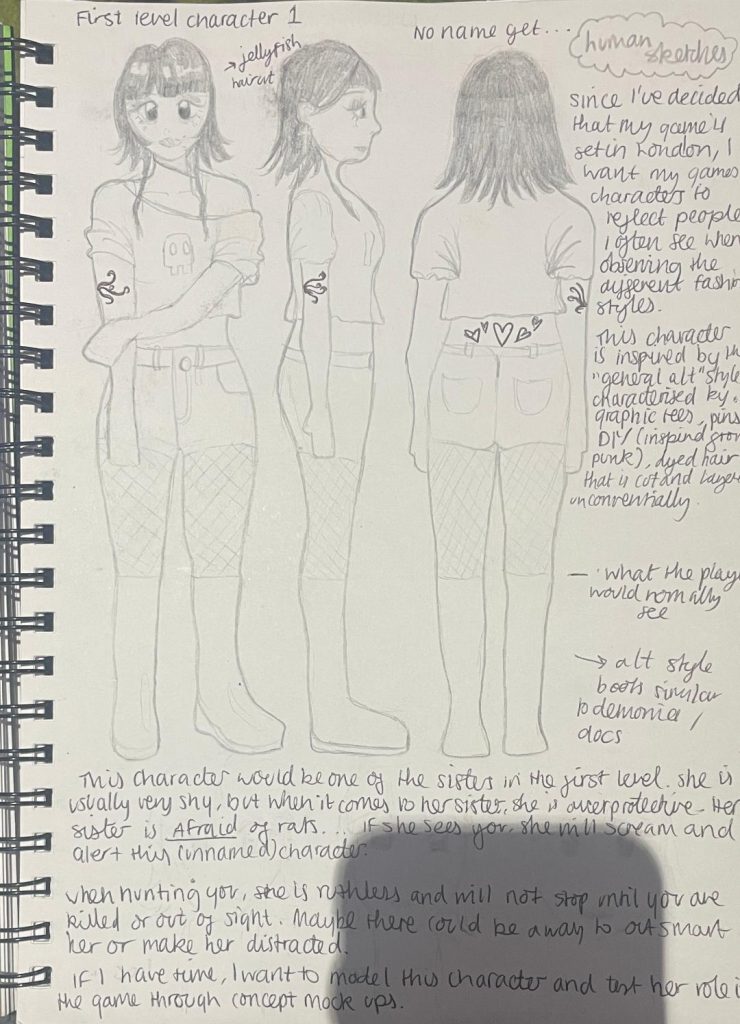 First level character 1
→ jellyfish
haircut
No name yet...
human
sketches
since I've decided
that my game'll
set in London, I
want my games
characters to
reflect people
I often see when
observing the
different fashi
styles.
This character
is inspired by th
"general alt" style
characterised by
graphic tees, pins
DIY (inspired from
punk), dyed hair
that is cut and layer
unconventially.
— what the playe
would normally
see
→ alt style
boots similar
to demonia /
docs
This character would be one of the sisters in the first level. she is
usually very shy, but when it comes to her sister, she is overprotective. Her
sister is Afraid of rats... if she sees you, she will scream and
alert this (unnamed) character.
when hunting you, she is ruthless and will not stop until you are
killed or out of sight. Maybe there could be a way to outsmart
her or make her distracted.
If I have time, I want to model this character and test her role i
the game through concept mock ups.